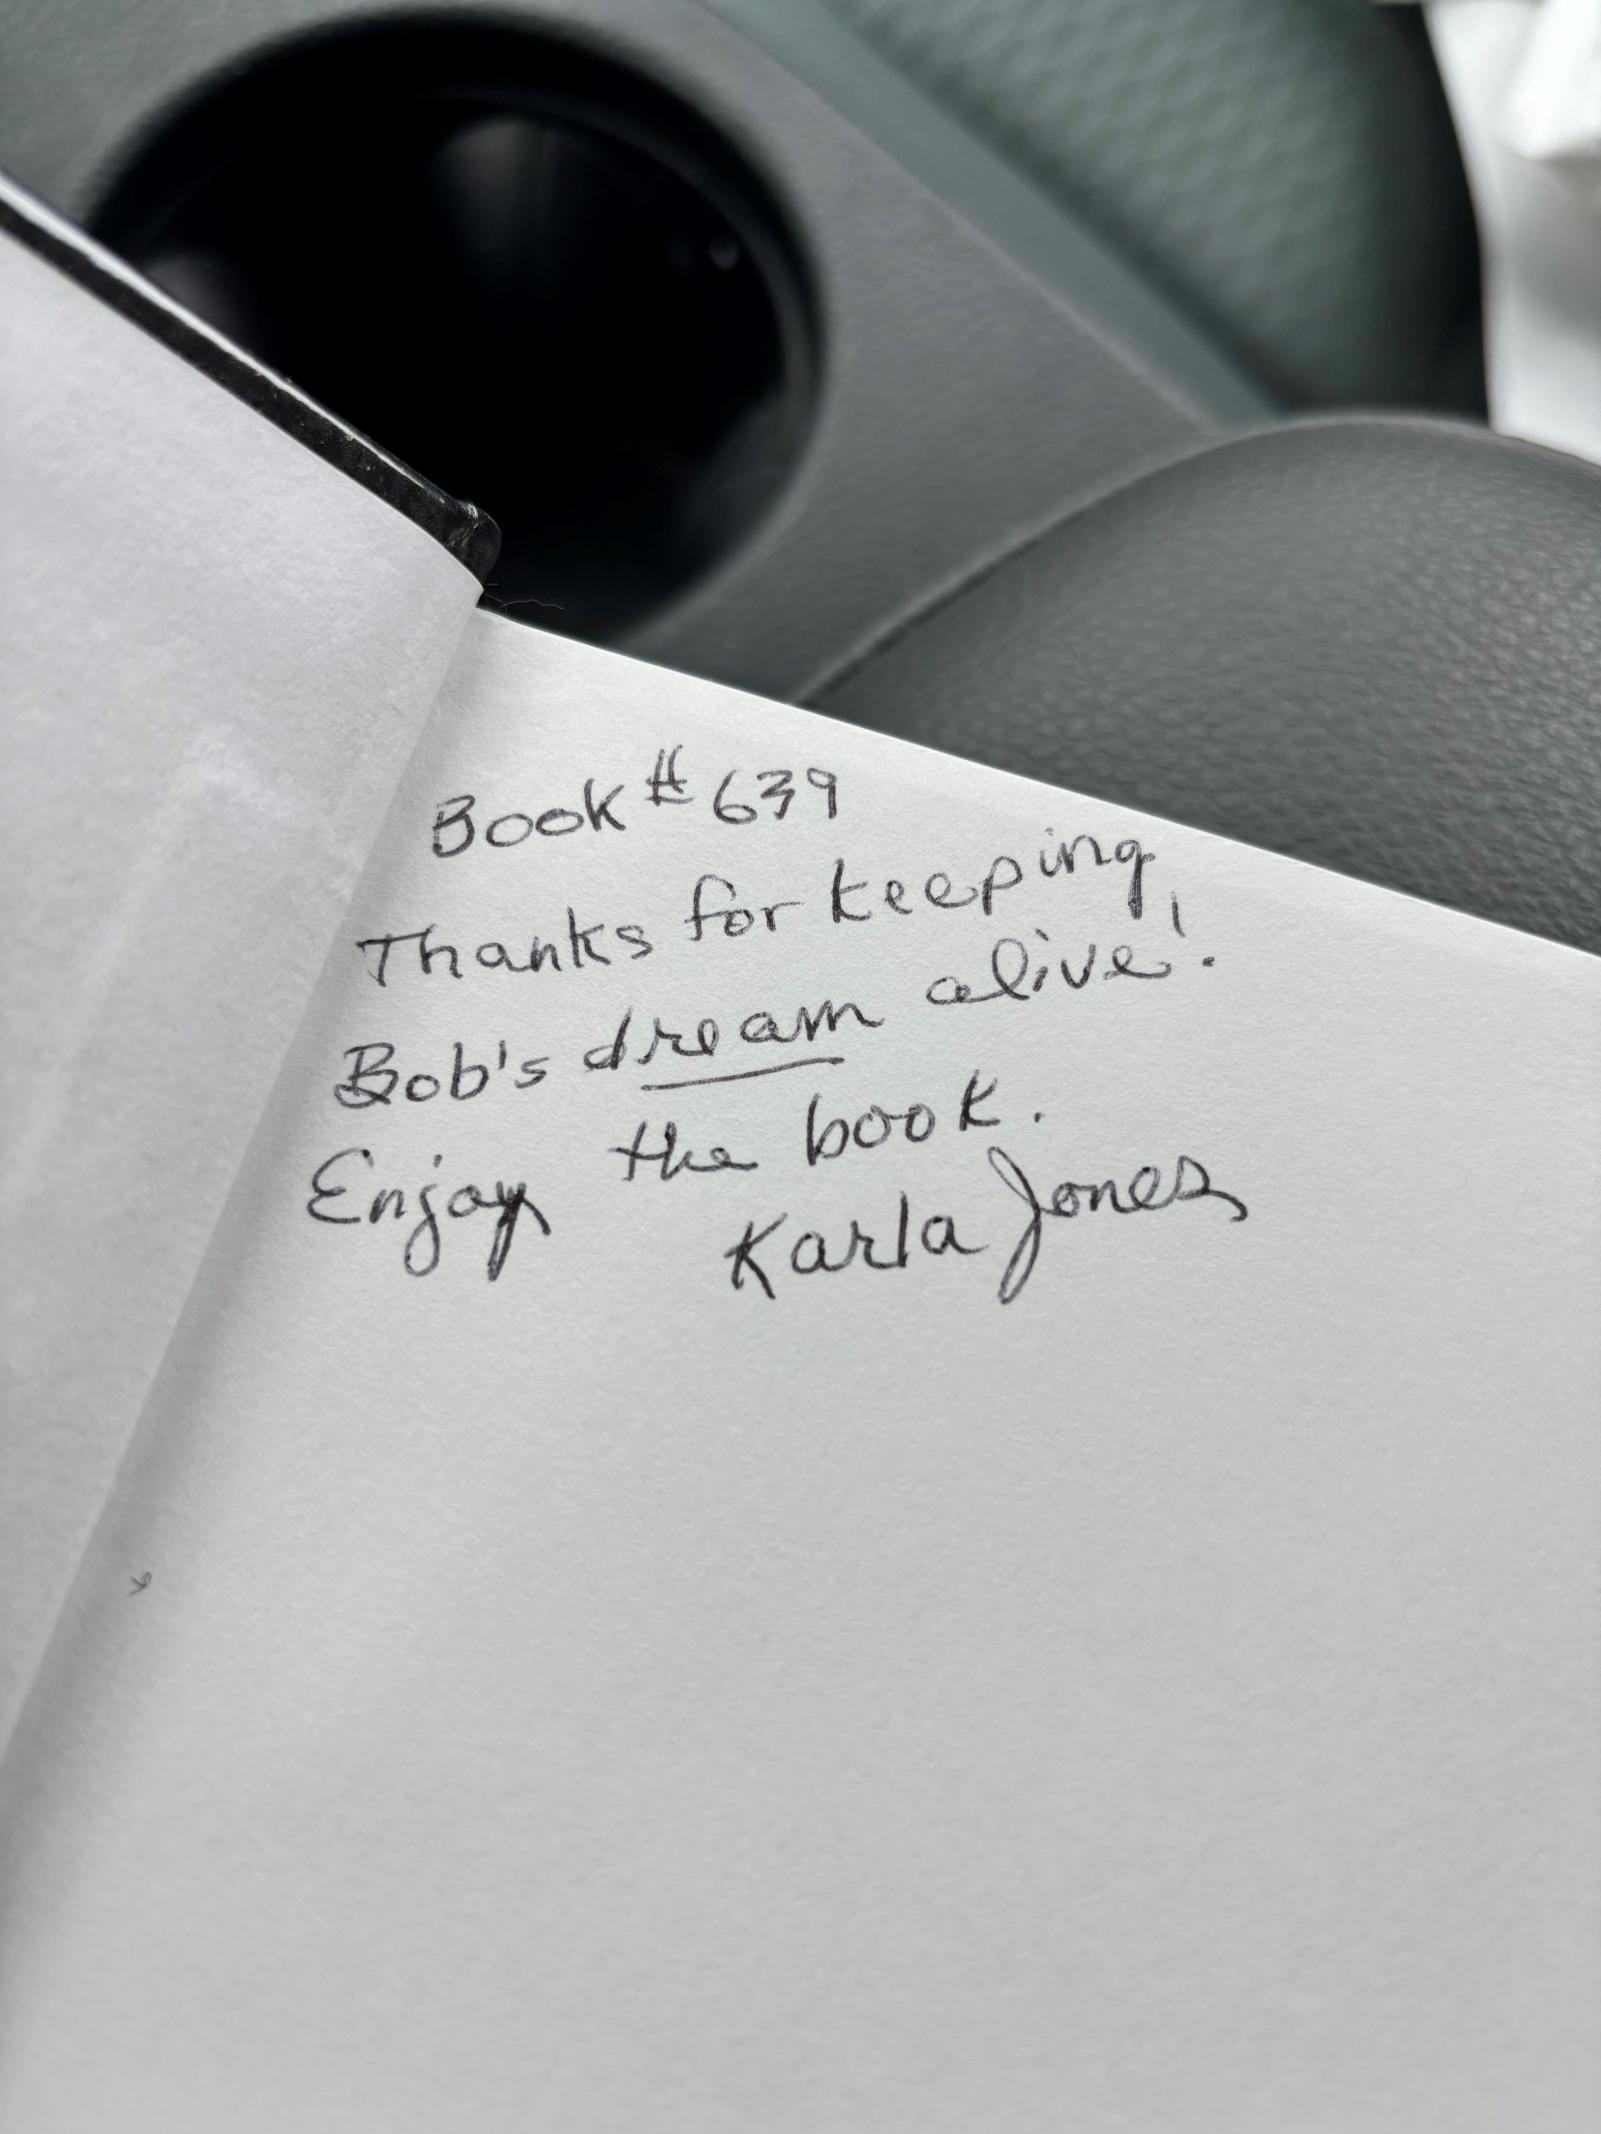 Book # 639
Thanks for keeping
Bob's dream alive!
Enjoy the book.
Karla Jones